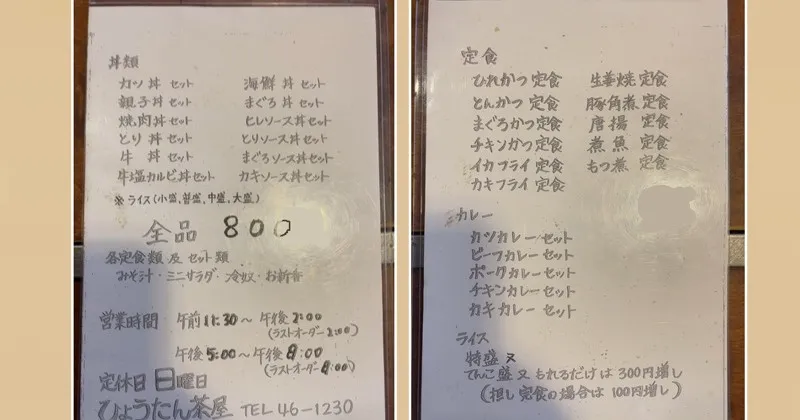 丼類
カツ丼 セット 海鮮丼セット
親子丼 セット まぐろ丼 セット
焼肉丼 セット ヒレソース丼セット
とり丼 セット とりソース丼セット
牛 丼 セット まぐろソース丼セット
牛塩カルビ丼セット カキソース丼セット
※ ライス(小盛,普盛,中盛,大盛)
全品 800
各定食類及セット類
みそ汁・ミニサラダ・冷奴・お新香
営業時間 午前11:30~午後2:00
(ラストオーダー2:00)
午後5:00~午後8:00
(ラストオーダー8:00)
定休日 日曜日
ひょうたん茶屋 TEL46-1230
定食
ひれかつ定食 生姜焼定食
とんかつ定食 豚角煮定食
まぐろかつ定食 唐揚定食
チキンかつ定食 煮魚定食
イカフライ定食 もつ煮定食
カキフライ定食
カレー
カツカレーセット
ビーフカレーセット
ポークカレーセット
チキンカレーセット
カキカレーセット
ライス
特盛又
てんこ盛又もれるだけは300円増し
(担し定食の場合は100円増し)